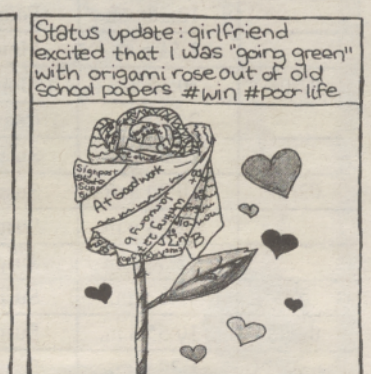 Status update: girlfriend
excited that I was "going green"
with origami rose out of old
school papers #win #poorlife
A+ Good work
B